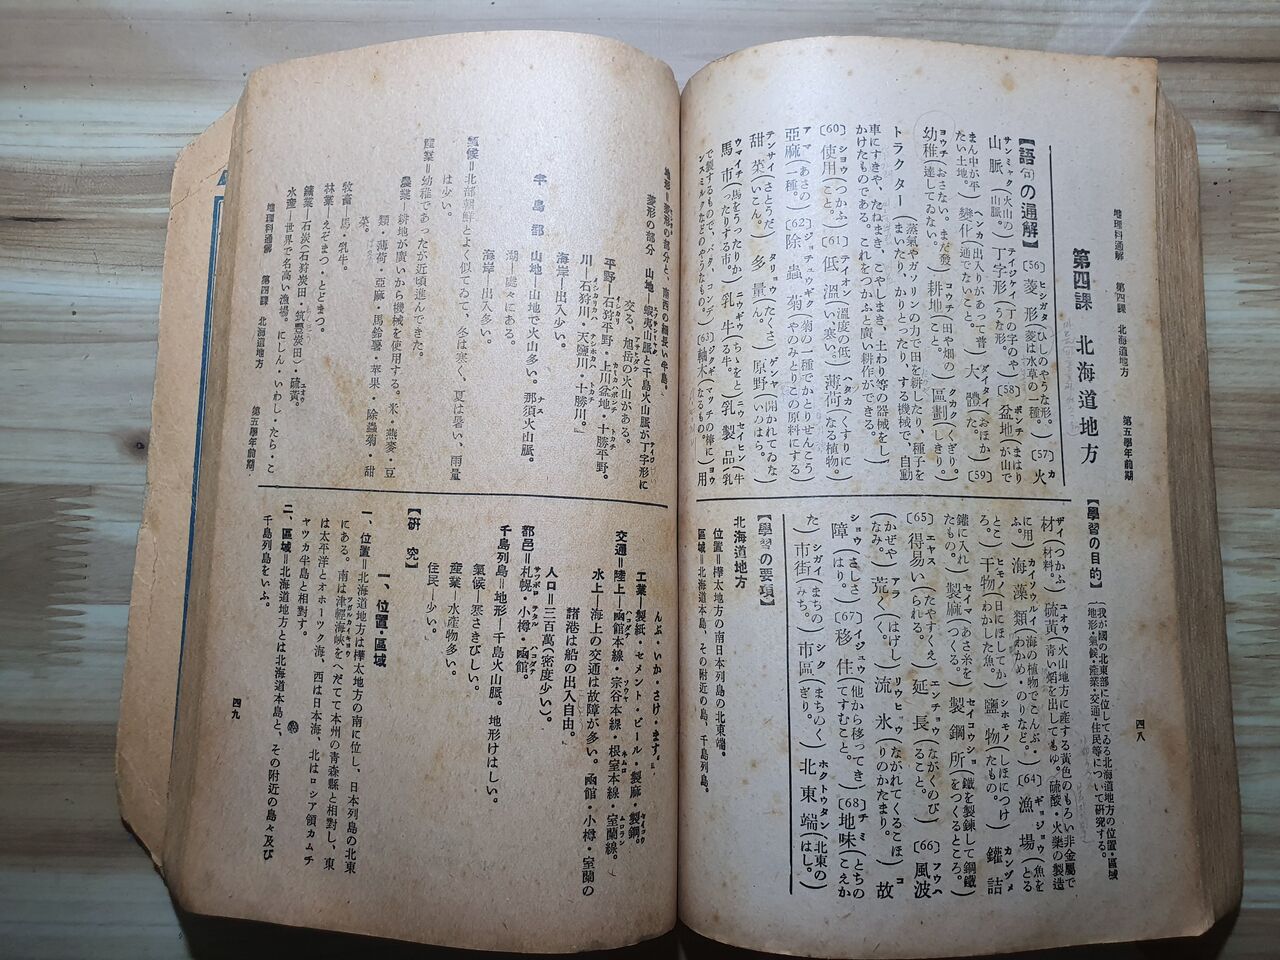 地理科通解 第四課 北海道地方 第五學年前期 四八
第四課 北海道地方
【語句の通解】〔56〕菱形(ひしのやうな形。菱は水草の一種。)〔57〕火
山脈(火山の山脈。)丁字形(丁の字のやうな形。)〔58〕盆地(まはりが山で
まん中が平たい土地。)變化(出入りがあつて普通でないこと。)大體(おほかた。)〔59〕
幼稚(おさない。まだ發達してゐない。)耕地(田や畑のこと。)區劃(くぎり。しきり。)
トラクター(蒸氣やガソリンの力で田を耕したり、種子をまいたり、かりとつたり、する機械で、自動
車にすきや、たねまき、こやしまき、土わり等の器械をし
かけたものである。これをつかふと廣い耕作ができる。)
〔60〕使用(つかふこと。)〔61〕低溫(溫度の低い、寒い。)薄荷(くすりになる植物。)
亞麻(あさの一種。)〔62〕除蟲菊(菊の一種でかとりせんこうやのみとりこの原料にする。)
甜菜(さとうだいこん。)多量(たくさん。)原野(開かれてゐないのはら。)
馬市(馬をうつたりかつたりする市。)乳牛(ちゝをとる牛。)乳製品(牛乳
で製するもので、バタ、コンデンスミルクなどのやうなもの。)〔63〕軸木(マッチの棒になるもの。)用
【學習の目的】(我が國の北東部に位してゐる北海道地方の位置・區域
地形・氣候・產業・交通・住民等について硏究する。)
材(つかふ材料。)硫黃(火山地方に產する黃色のもろい非金屬で
靑い焰を出してもゆ。硫酸・火藥の製造
に用ふ。)海藻類(海の植物でこんぶ、わかめ・のりなど。)〔64〕漁場(魚をとる
ところ。)干物(日にほしてかわかした魚。)鹽物(しほにつけたもの。)鑵詰
(鑵に入れたもの。)製麻(あさ糸を製る。)製鋼所(鐵を製鍊して鋼鐵をつくるところ。)
〔65〕得易い(たやすくえられる。)延長(ながくのびること。)〔66〕風波
(かぜやなみ。)荒く(はげしく。)流氷(ながれてくるこほりのかたまり。)故
障(さしさはり。)〔67〕移住(他から移つてきてすむこと。)〔68〕地味(とちのこえか
た)市街(まちのみち。)市區(まちのくぎり。)北東端(北東のはし。)
【學習の要項】
北海道地方
位置=樺太地方の南日本列島の北東端。
區域=北海道本島、その附近の島、千島列島。
地形=菱形の部分と、南西の細長い半島。
菱形の部分 山地―蝦夷山脈と千島火山脈が丁字形に
交る、旭岳の火山がある。
平野―石狩平野・上川盆地・十勝平野。
川―石狩川・天鹽川・十勝川。
海岸―出入少い。
半島部 山地―山地で火山多い。那須火山脈。
湖―處々にある。
海岸―出入多い。
氣候=北部朝鮮とよく似てゐて、冬は寒く、夏は暑い、雨量
は少い。
產業=幼稚であつたが近頃進んできた。
農業―耕地が廣いから機械を使用する。米・燕麥・豆
類・薄荷・亞麻・馬鈴薯・苹果・除蟲菊・甜
菜。
牧畜―馬・乳牛。
林業―えぞまつ・とどまつ。
鑛業―石炭(石狩炭田・筑豐炭田)・硫黃。
水產―世界で名高い漁場。にしん・いわし・たら・こ
んぶ・いか・さけ・ます。
工業―製紙・セメント・ビール・製麻・製鋼。
交通=陸上―函館本線・宗谷本線・根室本線・室蘭線。
水上―海上の交通は故障が多い。函館・小樽・室蘭の
諸港は船の出入自由。
人口=三百萬(密度少い)。
都邑=札幌・小樽・函館。
千島列島=地形―千島火山脈。地形けはしい。
氣候―寒さきびしい。
產業―水產物多い。
住民―少い。
【硏究】
一、位置・區域
一、位置=北海道地方は樺太地方の南に位し、日本列島の北東
にある。南は津輕海峽をへだてて本州の靑森縣と相對し、東
は太平洋とオホーツク海、西は日本海、北はロシア領カムチ
ヤツカ半島と相對す。
二、區域=北海道地方とは北海道本島と、その附近の島々及び
千島列島をいふ。
地理科通解 第四課 北海道地方 第五學年前期 四九